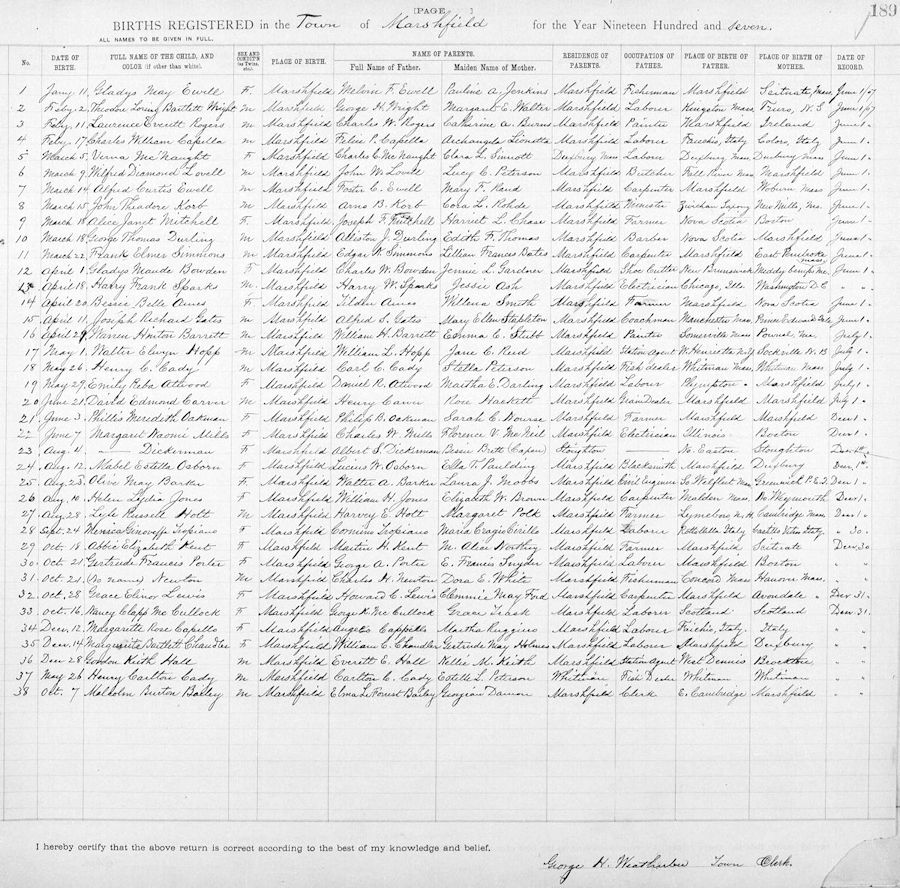 [PAGE ] 189
BIRTHS REGISTERED in the Town of Marshfield for the Year Nineteen Hundred and seven.
ALL NAMES TO BE GIVEN IN FULL.
No. DATE OF BIRTH. FULL NAME OF THE CHILD, AND COLOR (if other than white). SEX AND CONDIT'N (as Twins, etc.) PLACE OF BIRTH. NAME OF PARENTS. Full Name of Father. Maiden Name of Mother. RESIDENCE OF PARENTS. OCCUPATION OF FATHER. PLACE OF BIRTH OF FATHER. PLACE OF BIRTH OF MOTHER. DATE OF RECORD.
1 Jany. 11, Gladys May Ewell F. Marshfield Melvin F. Ewell Pauline A. Jenkins Marshfield Fisherman Marshfield Scituate, Mass June 1/07
2 Feby. 2, Theodore Loring Bartlett Wright m Marshfield George H. Wright Margaret E. Walter Marshfield Laborer Kingston Mass N.S June 1/07
3 Feby. 11 Laurence Everett Rogers m Marshfield Charles W. Rogers Catherine A. Burns Marshfield Painter Marshfield Ireland June 1
4 Feby. 17 Charles William Capella m Marshfield Felice P. Capella Archangela Marshfield Laborer Italy Italy June 1
5 March 5, Verna McNaught F Marshfield Charles E. McNaught Clara L. Sinnott Duxbury Mass Laborer Duxbury Mass Duxbury Mass June 1
6 March 9 Wilfred Diamond Lovell m Marshfield John W. Lovell Lucy C. Peterson Marshfield Butcher Fall River Mass Marshfield June 1
7 March 14 Alfred Curtis Ewell m Marshfield Foster C. Ewell Mary F. Rand Marshfield Carpenter Marshfield Woburn Mass June 1
8 March 15 John Theodore Korb m Marshfield Arno B. Korb Cora L. Rohde Marshfield Minister New Mills, Me. June 1
9 March 18 Alice Janet Mitchell F. Marshfield Joseph F. Mitchell Harriet L. Chase Marshfield Farmer Nova Scotia Boston June 1
10 March 18 George Thomas Durling m Marshfield Alliston J. Durling Edith F. Thomas Marshfield Barber Nova Scotia Marshfield June 1
11 March 22 Frank Elmer Simmons m Marshfield Edgar W. Simmons Lillian Frances Bates Marshfield Carpenter Marshfield East Pembroke Mass June 1
12 April 1. Gladys Maude Bowden F. Marshfield Charles W. Bowden Jennie L. Gardner Marshfield Shoe Cutter New Brunswick June 1
13 April 18. Harry Frank Sparks m. Marshfield Harry W. Sparks Jessie Ash Marshfield Electrician Chicago, Ill. Washington D.C " "
14 April 20 Bessie Belle Ames F Marshfield Tilden Ames Willena Smith Marshfield Farmer Marshfield Nova Scotia June 1
15 April 11, Joseph Richard Gates m Marshfield Alfred S. Gates Mary Ellen Stapleton Marshfield Coachman Manchester Mass Prince Edward Isle June 1
16 April 29, Warren Hinton Barrett m Marshfield William H. Barrett Emma E. Stubb Marshfield Painter Somerville Mass Pownal, Me. July 1
17 May 1. Walter Elwyn Hopp m Marshfield William L. Hopp Jane C. Reid Marshfield Station Agent W. Henrietta N.Y. Sackville N.B July 1
18 May 26. Henry C. Cady m Marshfield Carl C. Cady Stella Peterson Marshfield Fish dealer Whitman Mass. Whitman Mass July 1
19 May 29, Emily Reba Atwood F Marshfield Daniel R. Atwood Martha E. Darling Marshfield Labour Plympton Marshfield July 1
20 June 21, David Edmond Carver m Marshfield Henry Carver Rose Hackett Marshfield Grain Dealer Marshfield Marshfield July 1
21 June 3. Phillis Meredith Oakman F Marshfield Philip B. Oakman Sarah C. Nourse Marshfield Farmer Marshfield Marshfield Dec 1
22 June 7 Margaret Naomi Mills F Marshfield Charles W. Mills Florence V. McNeil Marshfield Electrician Illinois Boston Dec 1
23 Aug. 4. — Deckerman F Marshfield Albert S. Deckerman Bessie Britt (Capen) Stoughton — No. Easton Stoughton Dec 1
24 Aug. 12, Mabel Estella Osborn F Marshfield Lucius W. Osborn Ella T. Paulding Marshfield Blacksmith Marshfield Duxbury Dec. 1
25 Aug. 23, Olive May Barker F Marshfield Walter A. Barker Laura J. Mobbs Marshfield Civil Engineer So Wellfleet Mass Greenwich P.E.I. Dec 1
26 Aug. 10, Helen Lydia Jones F Marshfield William H. Jones Elizabeth W. Brown Marshfield Carpenter Malden Mass. No Weymouth Dec 1.
27 Aug. 28, Lyle Russell Holt m Marshfield Harvey E. Holt Margaret Polk Marshfield Farmer Lymeboro N.H. Cambridge Mass Dec 1
28 Sept. 24 F Marshfield Comino Tropiano Maria Marshfield Laborer Italy Italy " 30.
29 Oct. 18, Abbie Elizabeth Kent F Marshfield Martin H. Kent M. Alice Northey Marshfield Farmer Marshfield Scituate Dec 30
30 Oct. 21, Gertrude Frances Porter F Marshfield George A. Porter E. Francis Snyder Marshfield Labour Marshfield Boston " "
31 Oct. 21. (No name) Newton m Marshfield Charles H. Newton Dora E. White Marshfield Fisherman Concord Mass Hanover Mass. " "
32 Oct. 28 Grace Elinor Lewis F Marshfield Howard C. Lewis May Ford Marshfield Carpenter Marshfield Avondale " Dec 31.
33 Oct. 16, Nancy Clapp McCullock F Marshfield George K. McCullock Grace Trask Marshfield Laborer Scotland Scotland Dec 31.
34 Dec. 12, Margarette Rose Capello F Marshfield Angelo Cappello Martha Ruggins Marshfield Labour Italy. Italy " "
35 Dec. 14 Marguerite Bartlett Chandler F Marshfield William C. Chandler Gertrude May Holmes Marshfield Laborer Marshfield Duxbury " "
36 Dec 28 Gordon Keith Hall m Marshfield Everett E. Hall Nellie M. Keith Marshfield Station Agent West Dennis Brockton " "
37 May 26 Henry Carlton Cady m Marshfield Carlton C. Cady Estelle L. Peterson Whitman Fish Dealer Whitman Whitman " "
38 Oct. 7 Malcolm Burton Bailey m Marshfield Elmer L. Forest Bailey Georgian Damon Marshfield Clerk E. Cambridge Marshfield " "
I hereby certify that the above return is correct according to the best of my knowledge and belief.
George H. Weatherbee Town Clerk.